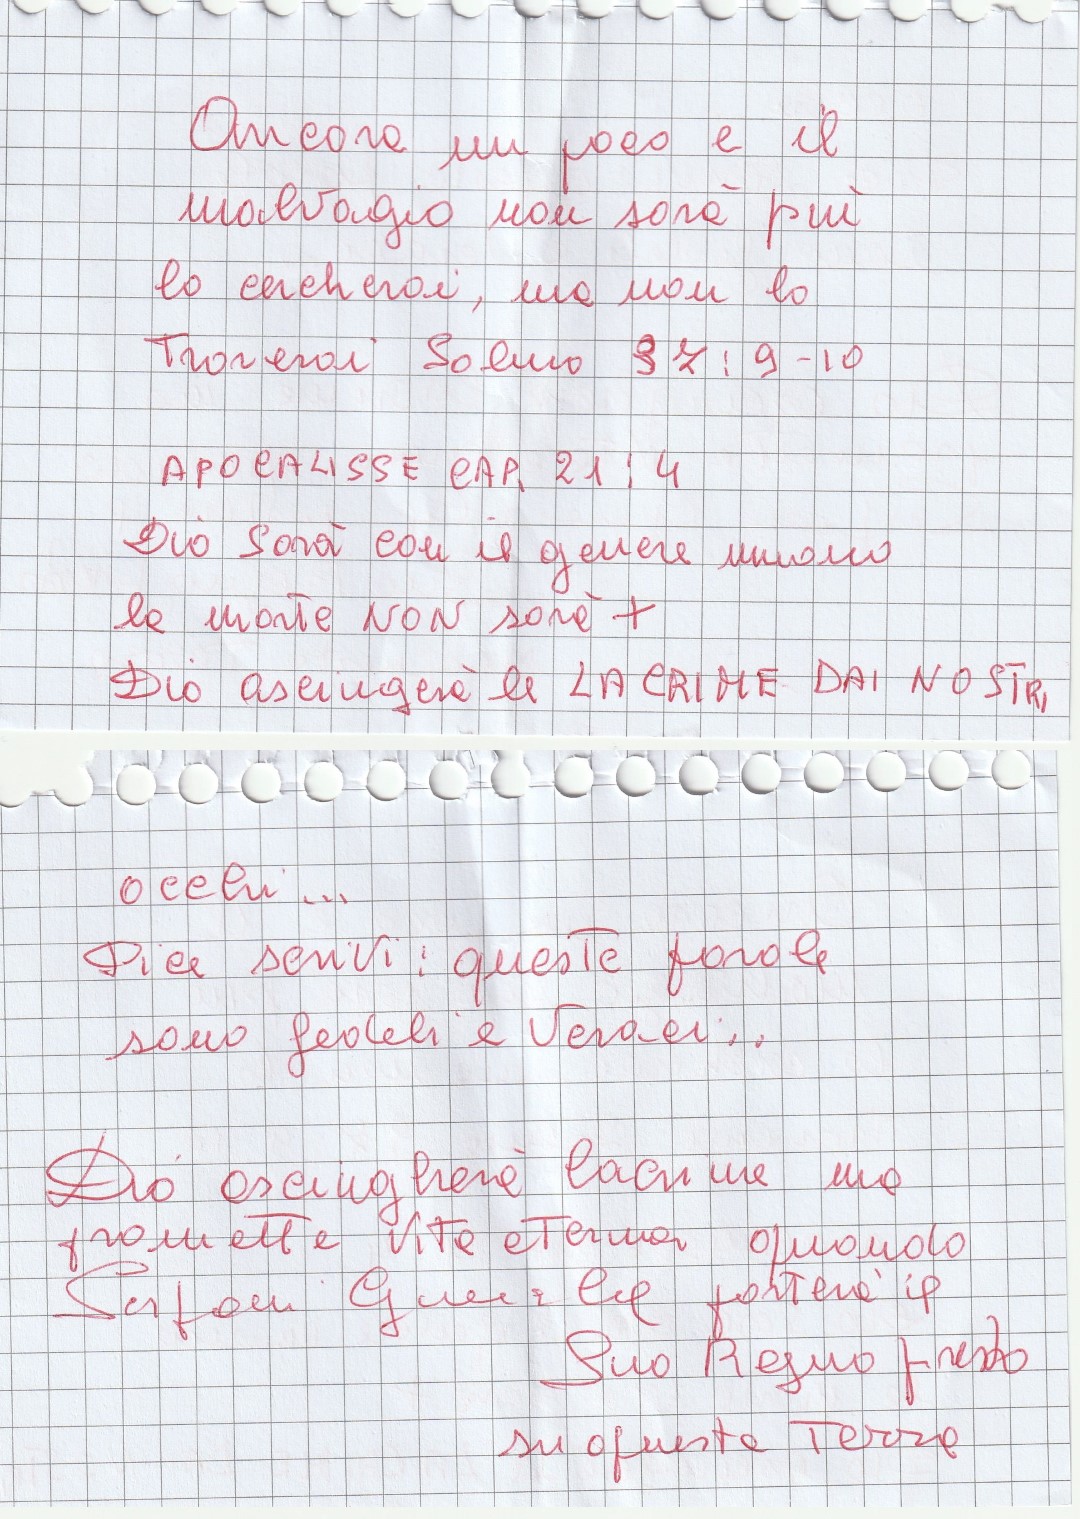 Ancora un poco e il
malvagio non sarà più
lo cercherai, ma non lo
Troverai Salmo 37:9-10
APOCALISSE CAP, 21:4
Dio Sarà con il genere umano
la morte NON sarà +
Dio asciugerà le LACRIME DAI NOSTRI
occhi...
Dice scrivi: queste parole
sono fedeli e Veraci...
Dio asciugherà lacrime ma
promette Vita eTerna quando
porterà il
Suo Regno presto
su questa Terra